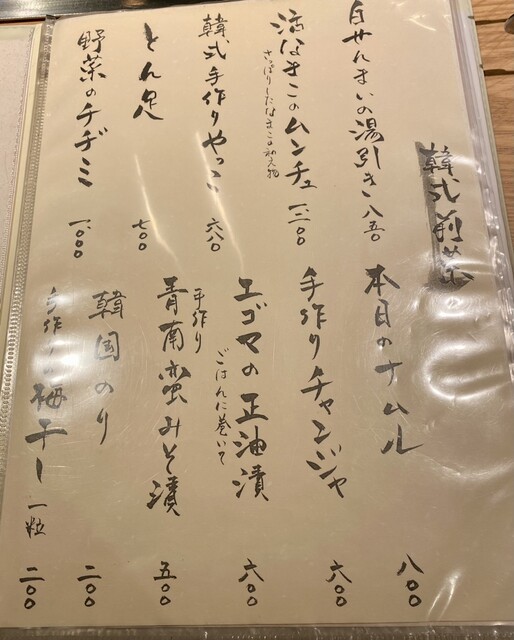 韓式前菜
白せんまいの湯引き 八五〇
活なまこのムンチュ 一、二〇〇
さっぱりしたなまこの和え物
韓式手作りやっこ 六八〇
とん足 七〇〇
野菜のチヂミ 一、〇〇〇
本日のナムル 八〇〇
手作りチャンジャ 六〇〇
エゴマの正油漬 六〇〇
ごはんに巻いて
手作り
青南蛮みそ漬 五〇〇
韓国のり 二〇〇
手作り梅干し 一粒 二〇〇